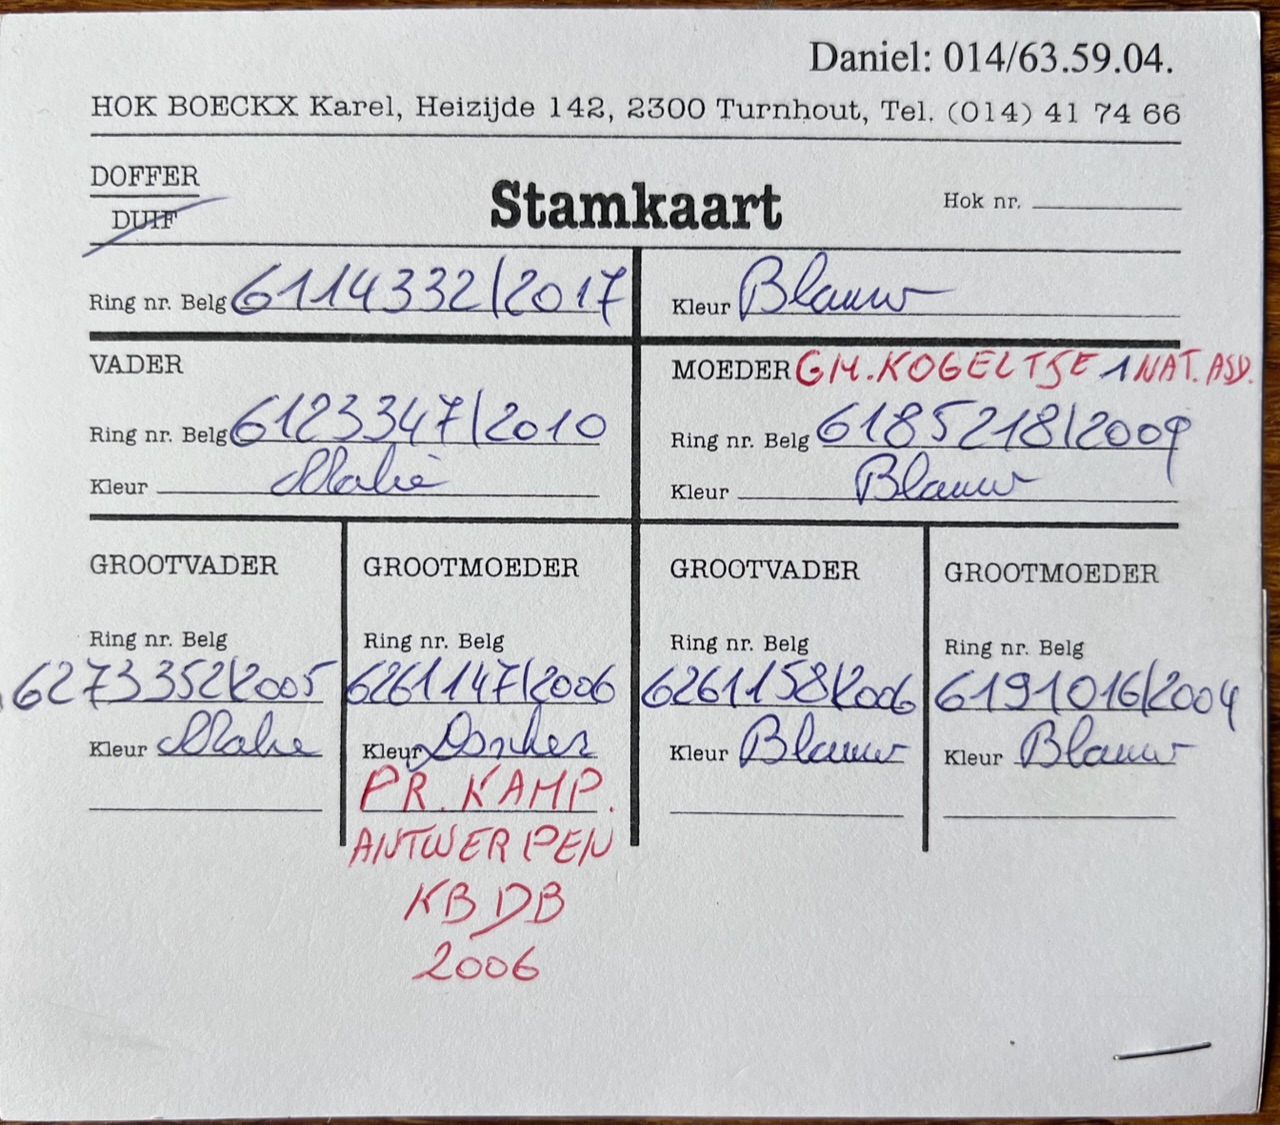 Daniel: 014/63.59.04.
HOK BOECKX Karel, Heizijde 142, 2300 Turnhout, Tel. (014) 41 74 66
DOFFER
DUIF
Stamkaart
Hok nr.
Ring nr. Belg 6114332/2017
Kleur Blauw
VADER
Ring nr. Belg 6123347/2010
Kleur Kalie
MOEDER GM. KOGELTJE 1 NAT. ASD.
Ring nr. Belg 6185218/2009
Kleur Blauw
GROOTVADER
Ring nr. Belg
6273352/2005
Kleur
GROOTMOEDER
Ring nr. Belg
6261147/2006
Kleur Donker
PR. KAMP.
ANTWERPEN
KBDB
2006
GROOTVADER
Ring nr. Belg
6261158/2006
Kleur Blauw
GROOTMOEDER
Ring nr. Belg
6191016/2004
Kleur Blauw